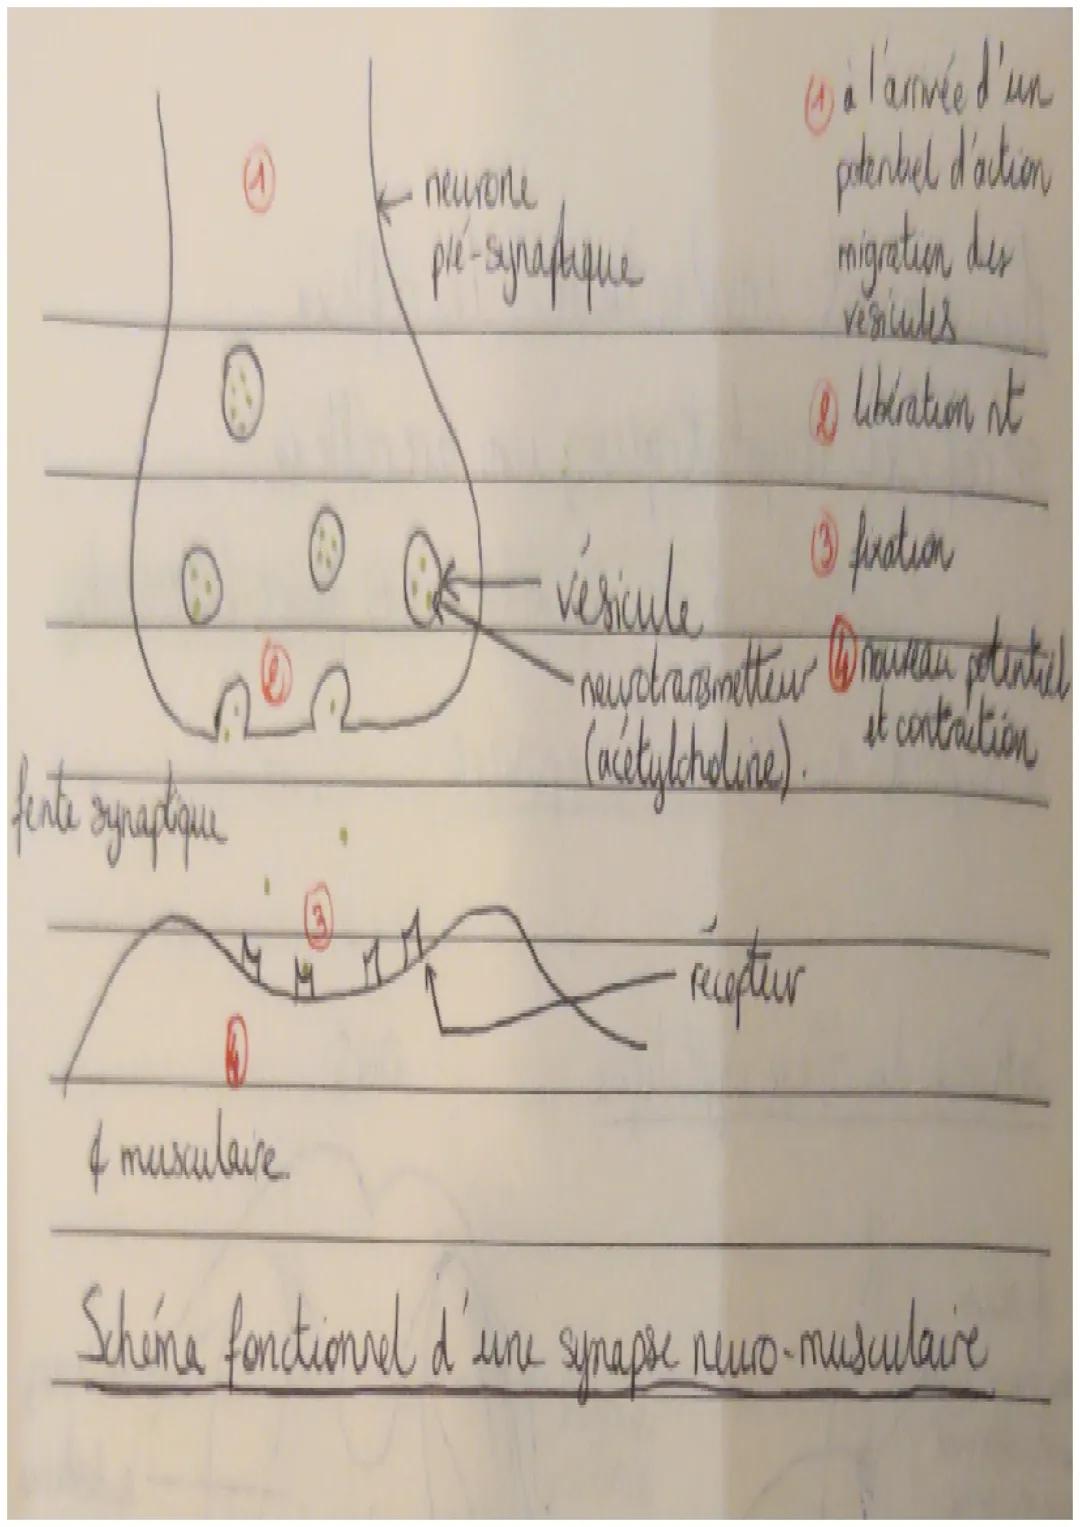 ① à l'arrivée d'un
potentiel d'action
migration des
vésicules
② libération nt
③ fixation
④ nouveau potentiel
et contraction
①
neurone
pré-synaptique
vésicule
②
neurotransmetteur
(acétylcholine).
fente synaptique
③
récepteur
④
¢ musculaire.
Schéma fonctionnel d'une synapse neuro-musculaire